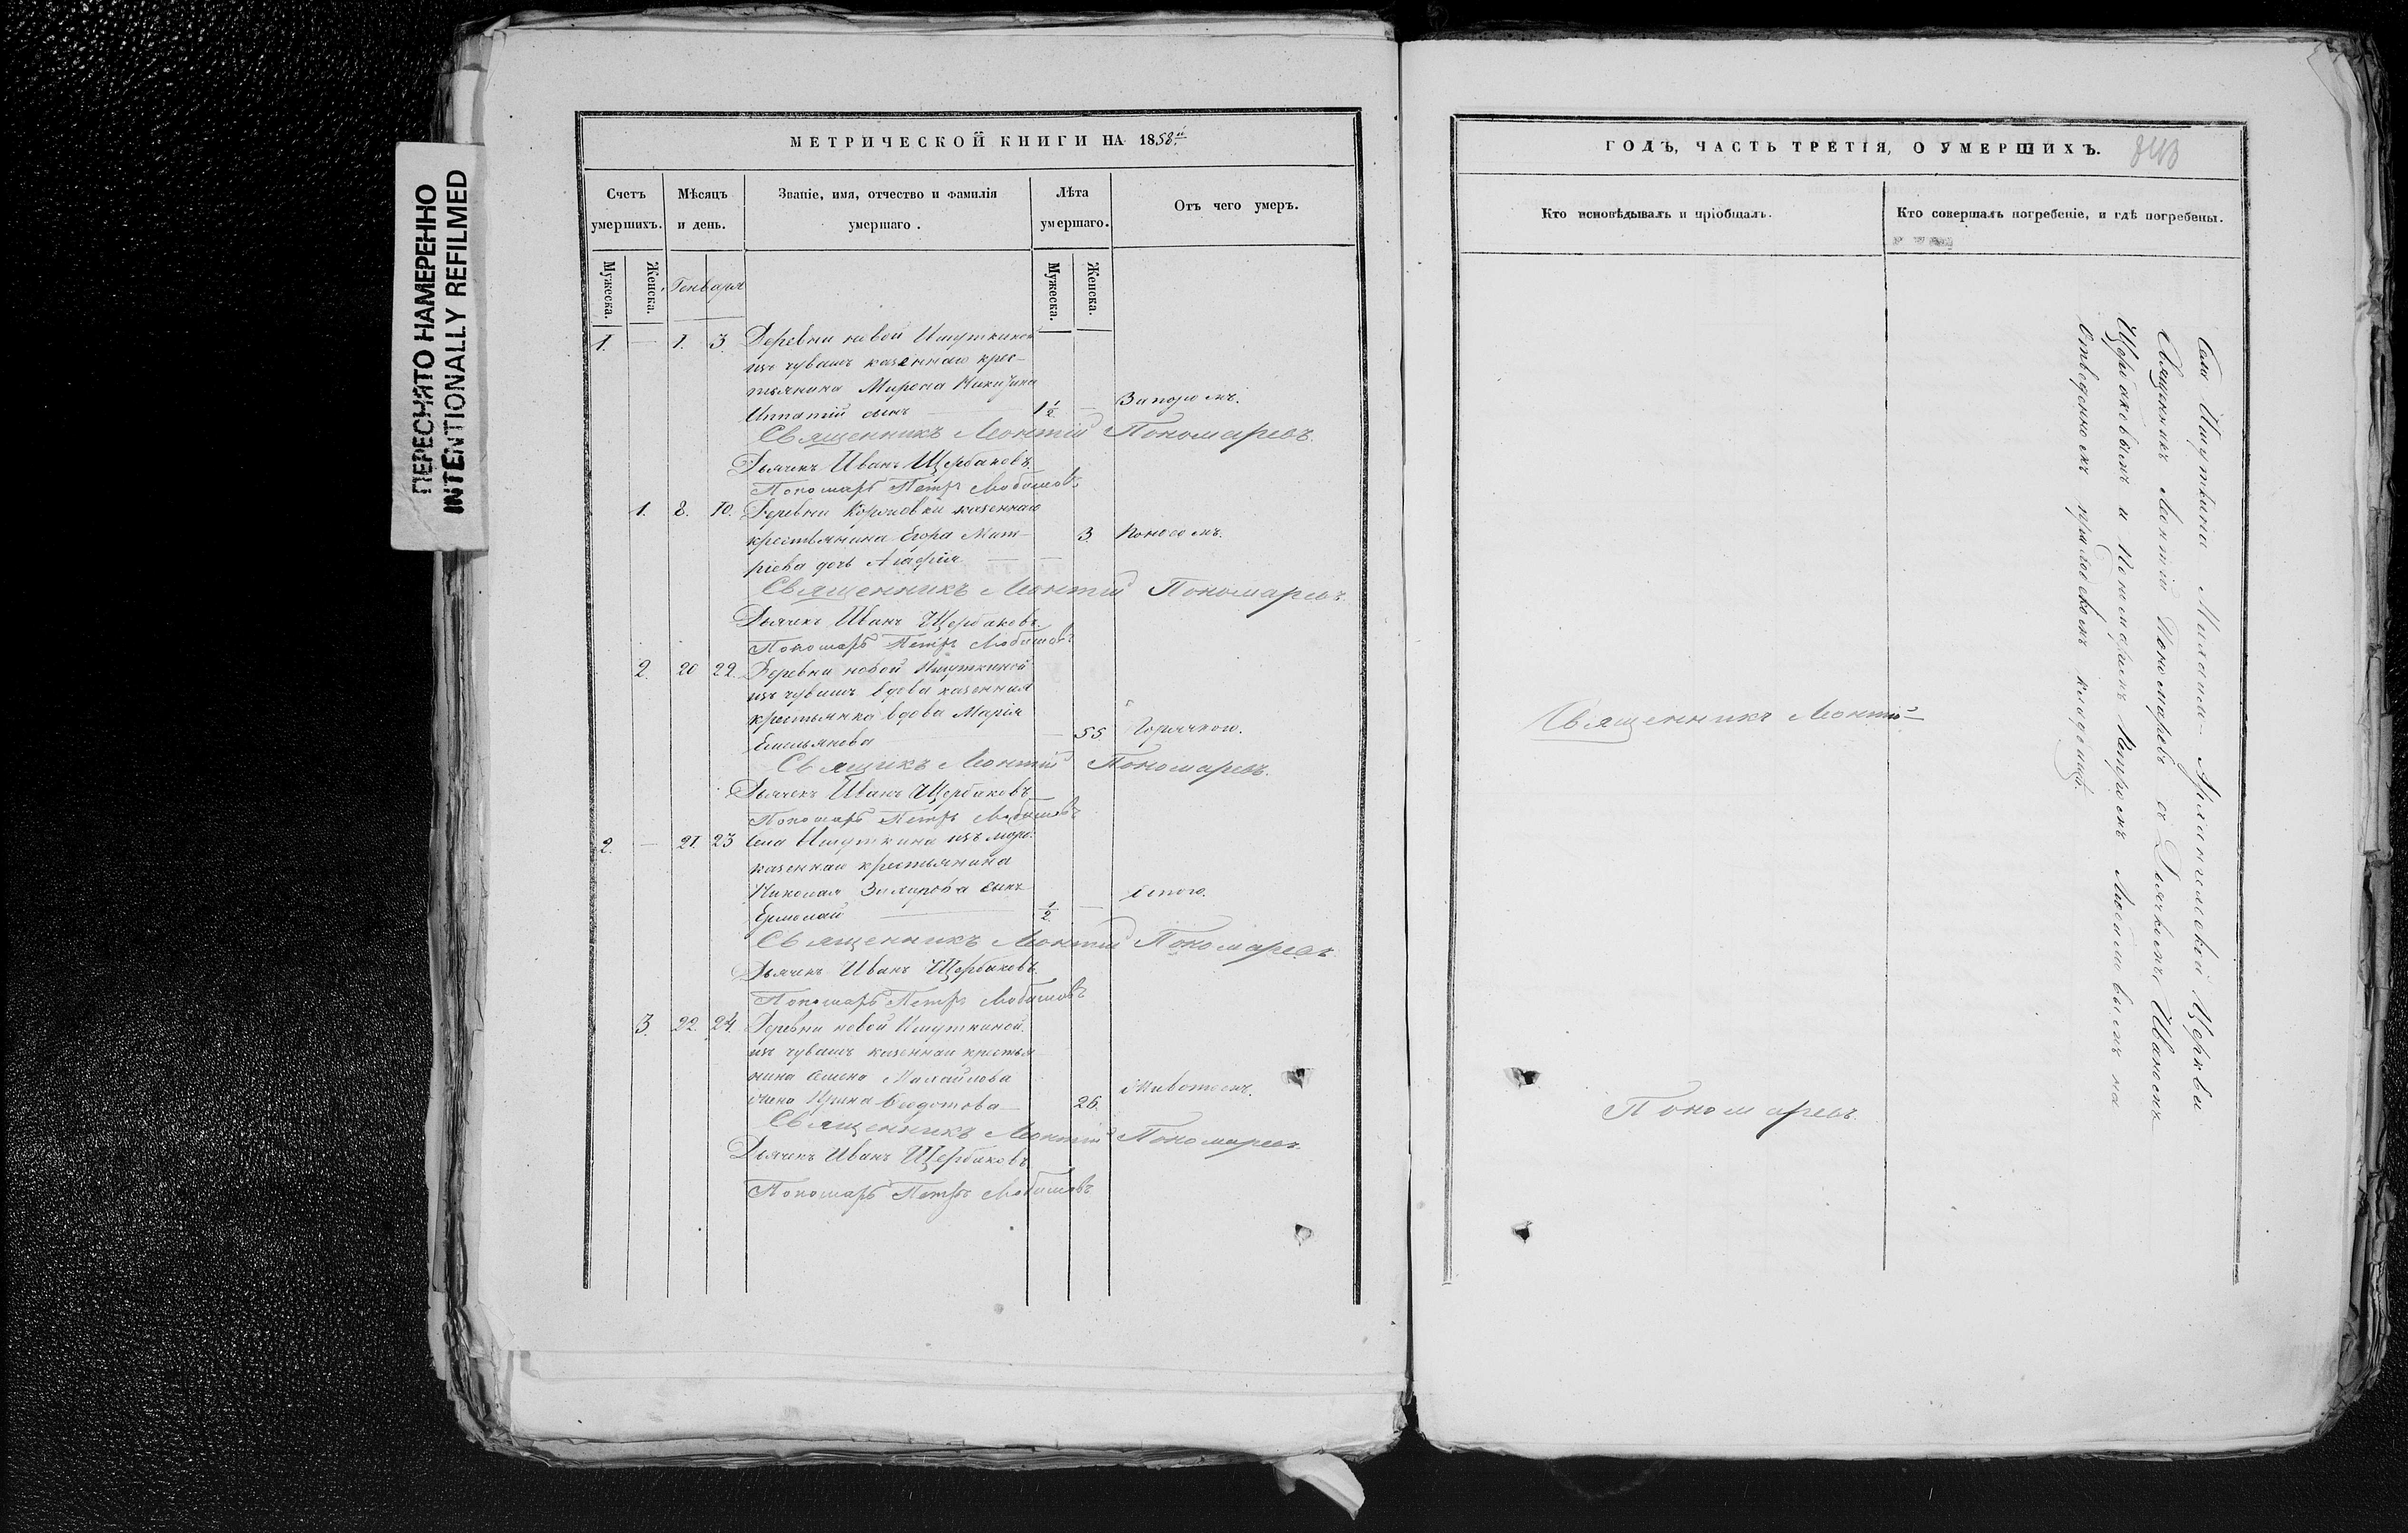 ПЕРЕСНЯТО НАМЕРЕННО
INTENTIONALLY REFILMED
МЕТРИЧЕСКОЙ КНИГИ НА 1858й
Счетъ умершихъ.
Мѣсяцъ и день.
Званіе, имя, отчество и фамилія умершаго.
Лѣта умершаго.
Отъ чего умеръ.
Мужеска.
Женска.
Генваря
Мужеска.
Женска.
1. — 1. 3. Деревни новой Ишуткиной
изъ чувашъ казеннаго крес-
тьянина Мирона Никитина
Ипатій сынъ — 1½ — Запоромъ.
Священникъ Леонтій Пономаревъ.
Дьячекъ Иванъ Щербаковъ
Пономарь Петръ Любимовъ
1. 8. 10. Деревни казеннаго
крестьянина Егора Мит-
ріева дочь Агафія — 3. Поносомъ.
Священникъ Леонтій Пономаревъ.
Дьячекъ Иванъ Щербаковъ.
Пономарь Петръ Любимовъ
2. 20 22. Деревни новой Ишуткиной
изъ чувашъ вдова казенная
крестьянка вдова Марія
Емельянова — 55. Горячкою.
Священикъ Леонтій Пономаревъ.
Дьячекъ Иванъ Щербаковъ
Пономарь Петръ Любимовъ
2. — 21. 23 Села Ишуткина изъ
казеннаго крестьянина
Николая сынъ
Ермолай — ½ — Оспою.
Священникъ Леонтій Пономаревъ
Дьячекъ Иванъ Щербаковъ.
Пономарь Петръ Любимовъ
3. 22. 24. Деревни новой Ишуткиной
изъ чувашъ казеннаго крестья
нина Семена
жена Ирина Федотова — 26. Животомъ.
Священникъ Леонтій Пономаревъ
Дьячекъ Иванъ Щербаковъ
Пономарь Петръ Любимовъ
ГОДЪ, ЧАСТЬ ТРЕТІЯ, О УМЕРШИХЪ.
Кто исповѣдывалъ и пріобщалъ.
Кто совершалъ погребеніе, и гдѣ погребены.
Священникъ Леонтій
Пономаревъ.
Села Ишуткина Михаило-Архангельской Церкви
Священикъ Леонтій Пономаревъ съ Дьячкомъ Иваномъ
Щербаковымъ и Пономаремъ Петромъ Любимовымъ на
отведенномъ приходскомъ кладбищѣ.